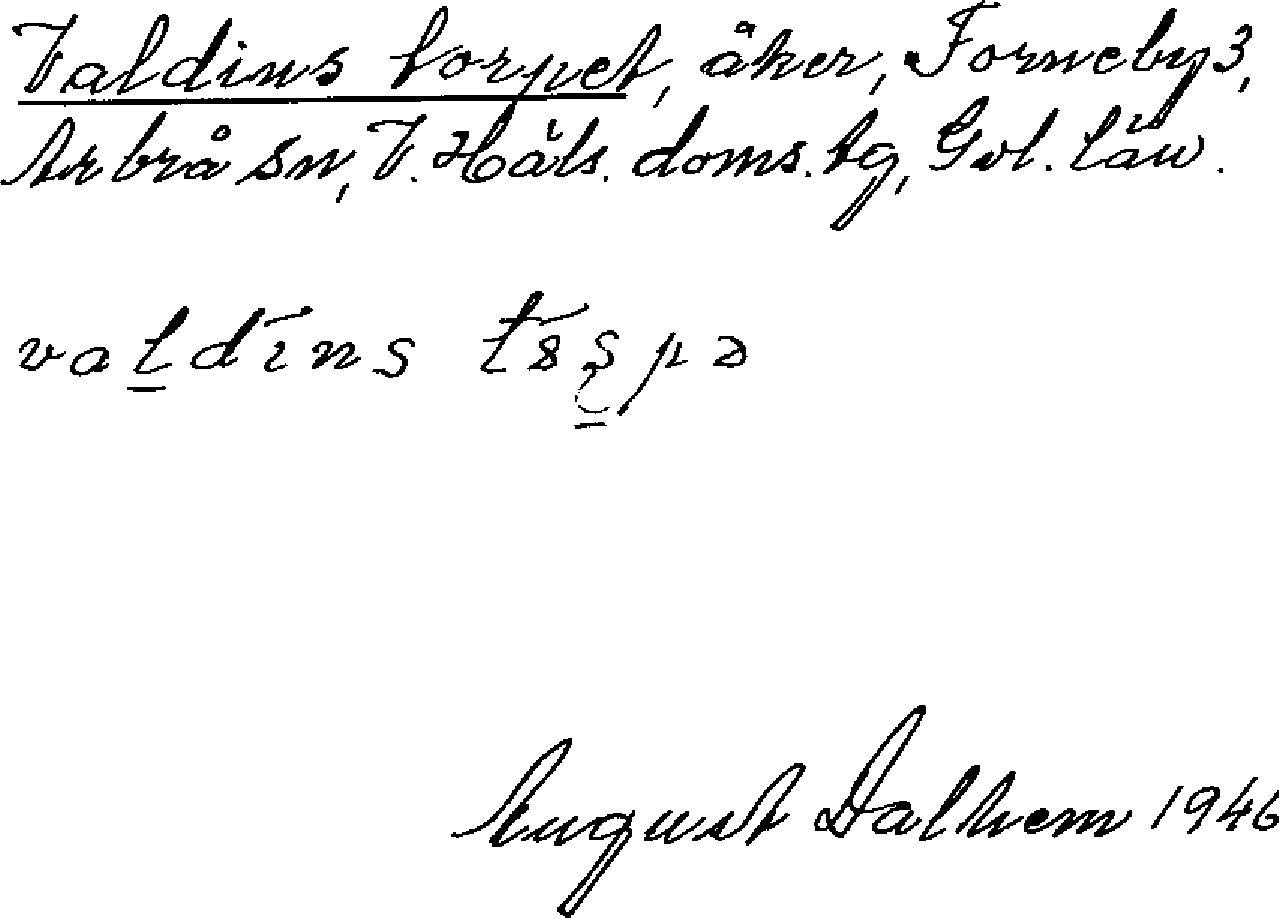 Valdins torpet, åker, Forneby 3,
Arbrå sn, V. Häls. doms. tg, Gvl. län.
valdīns
August Dalhem 1946